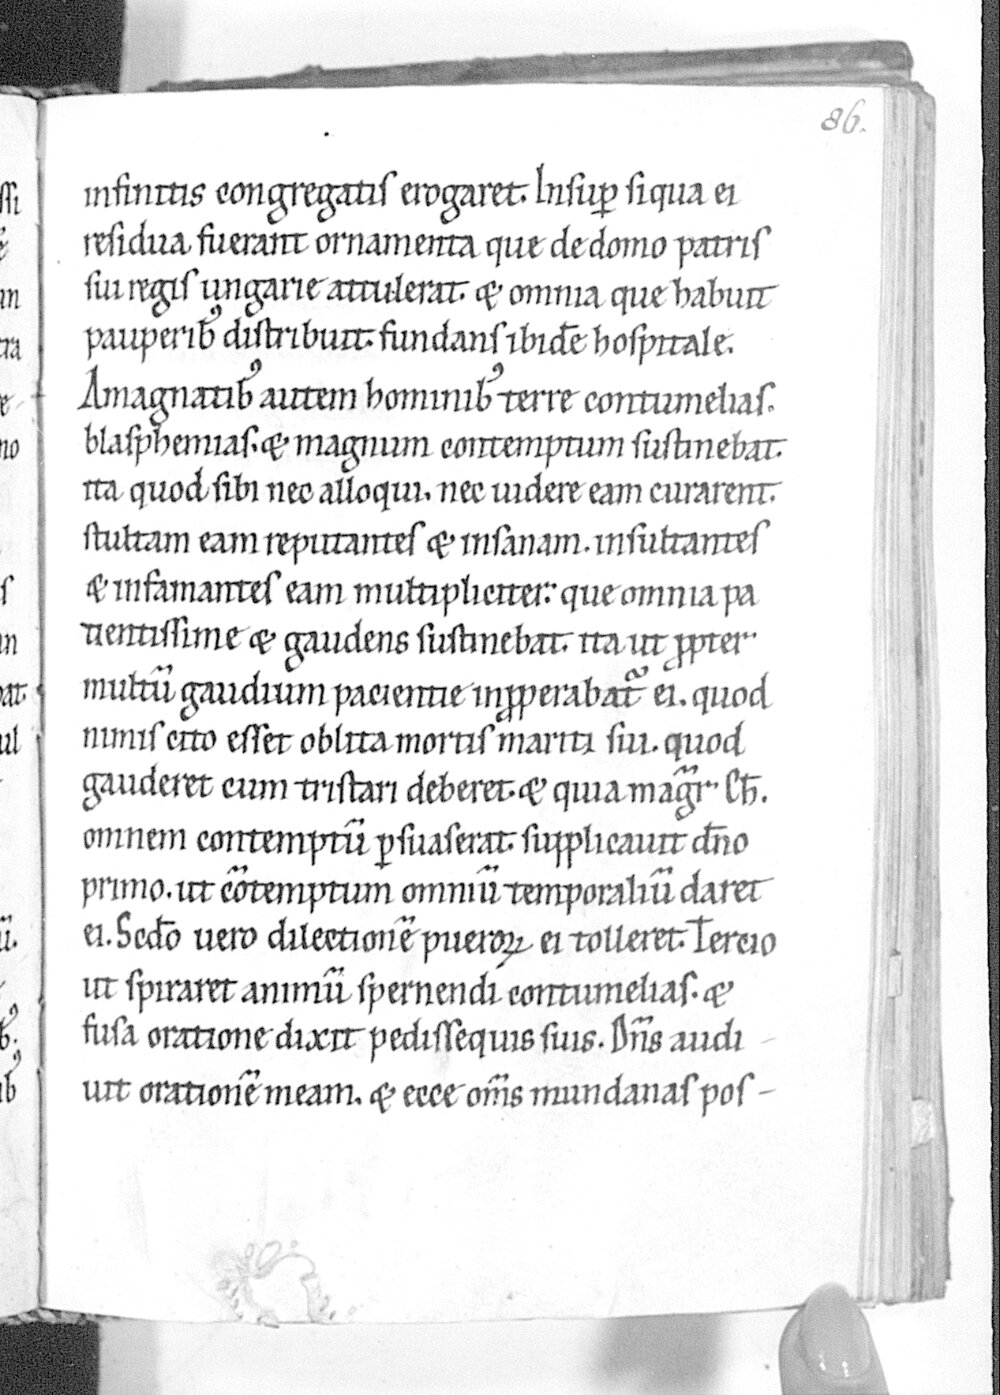 86.
infinitis congregatis erogaret. Insup̱ siqua ei
residua fuerant ornamenta que de domo patris
sui regis ungarie attulerat. & omnia que habuit
pauperibꝰ distribuit. fundans ibidē hospitale.
Amagnatibꝰ autem hominibꝰ terre contumelias.
blasphemias. & magnum contemptum sustinebat.
ita quod sibi nec alloqui. nec uidere eam curarent.
stultam eam reputantes & insanam. insultantes
& infamantes eam multipliciter: que omnia pa
tientissime & gaudens sustinebat. ita ut ꝓpter
multū gaudium pacientie inꝓperabatᷣ ei. quod
nimis cito esset oblita mortis mariti sui. quod
gauderet cum tristari deberet. & quia magr̄ Ch̄.
omnem contemptū ꝑsuaserat. supplicauit dn̄o
primo. ut cōtemptum omniū temporaliū daret
ei. Scdō uero dilectionē pueroꝝ ei tolleret. Tercio
ut spiraret animū spernendi contumelias. &
fusa oratione dixit pedissequis suis. Dn̄s audi
uit orationē meam. & ecce om̄s mundanas pos-